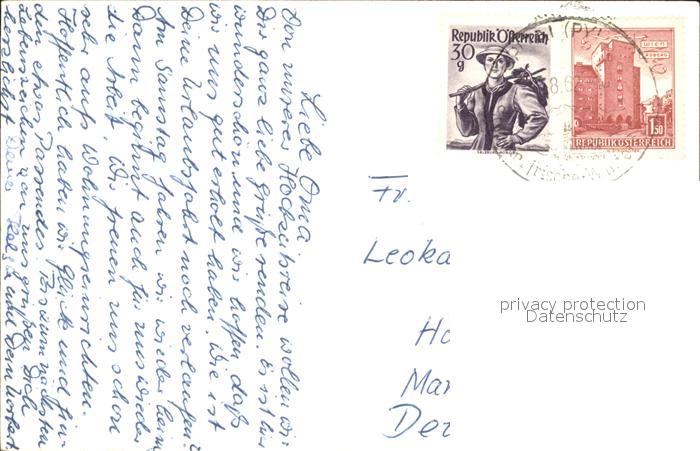 Liebe Oma
Von unserer Hochzeitsreise wollen wir
Dir ganz liebe Grüße senden. Es ist hier
wunderschön und wir hoffen daß
wir uns gut erholt haben. Wie ist
Deine Urlaubsfahrt noch verlaufen?
Am Samstag fahren wir wieder heim
Dann beginnt auch für uns wieder
die Arbeit, wir freuen uns schon
sehr aufs Wohnungseinrichten.
Hoffentlich haben wir Glück und fin-
den etwas Passendes. Bis zum nächsten
Lebenszeichen von uns grüßen Dich
herzlichst Deine und Dein Norbert
Republik Österreich
30
g
WIEN
1,50
REPUBLIK ÖSTERREICH
Fr.
Leoka
Ho
Mar
Der
privacy protection
Datenschutz